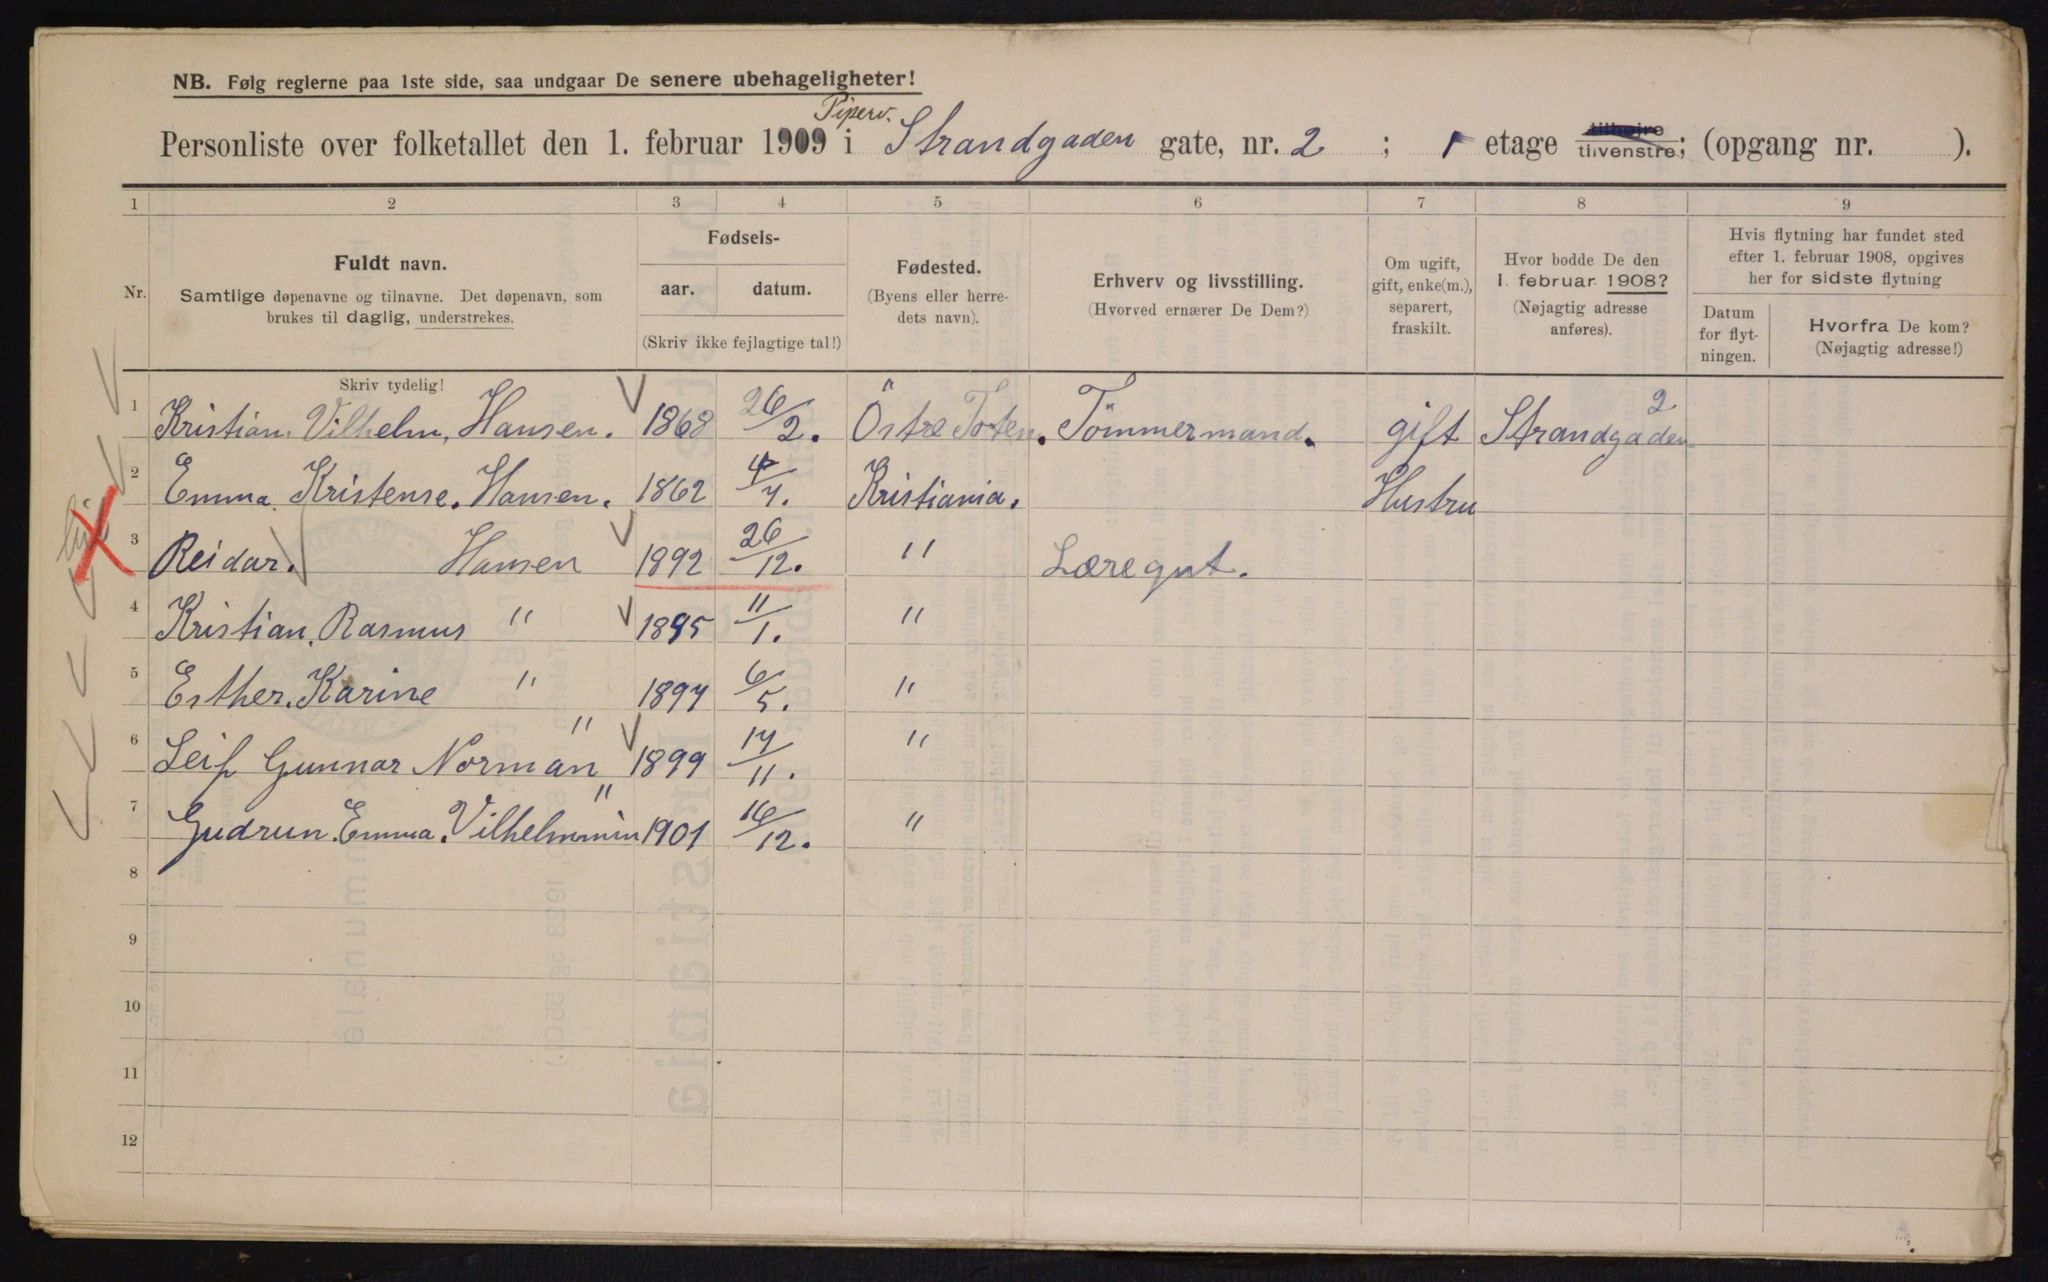 NB. Følg reglerne paa 1ste side, saa undgaar De senere ubehageligheter!
Piperv.
Personliste over folketallet den 1. februar 1909 i Strandgaden gate, nr. 2 ; 1 etage tilhøjre tilvenstre; (opgang nr. ).
1 2 3 4 5 6 7 8 9
Nr.
Fuldt navn.
Samtlige døpenavne og tilnavne. Det døpenavn, som
brukes til daglig, understrekes.
Fødsels-
aar. datum.
(Skriv ikke fejlagtige tal!)
Fødested.
(Byens eller herre-
dets navn).
Erhverv og livsstilling.
(Hvorved ernærer De Dem?)
Om ugift,
gift, enke(m.),
separert,
fraskilt.
Hvor bodde De den
1. februar 1908?
(Nøjagtig adresse
anføres).
Hvis flytning har fundet sted
efter 1. februar 1908, opgives
her for sidste flytning
Datum
for flyt-
ningen.
Hvorfra De kom?
(Nøjagtig adresse!)
Skriv tydelig!
1 Kristian. Vilhelm. Hansen. 1868 26/2. Östre Toten. Tömmermand. gift Strandgaden 2
2 Emma. Kristense. Hansen. 1862 4/7. Kristiania. Hustru
3 Reidar. Hansen 1892 26/12. " Læregut.
4 Kristian. Rasmus " 1895 11/1. "
5 Esther. Karine " 1897 6/5. "
6 Leif Gunnar Norman " 1899 17/11. "
7 Gudrun. Emma. Vilhelmmin " 1901 16/12. "
8
9
10
11
12